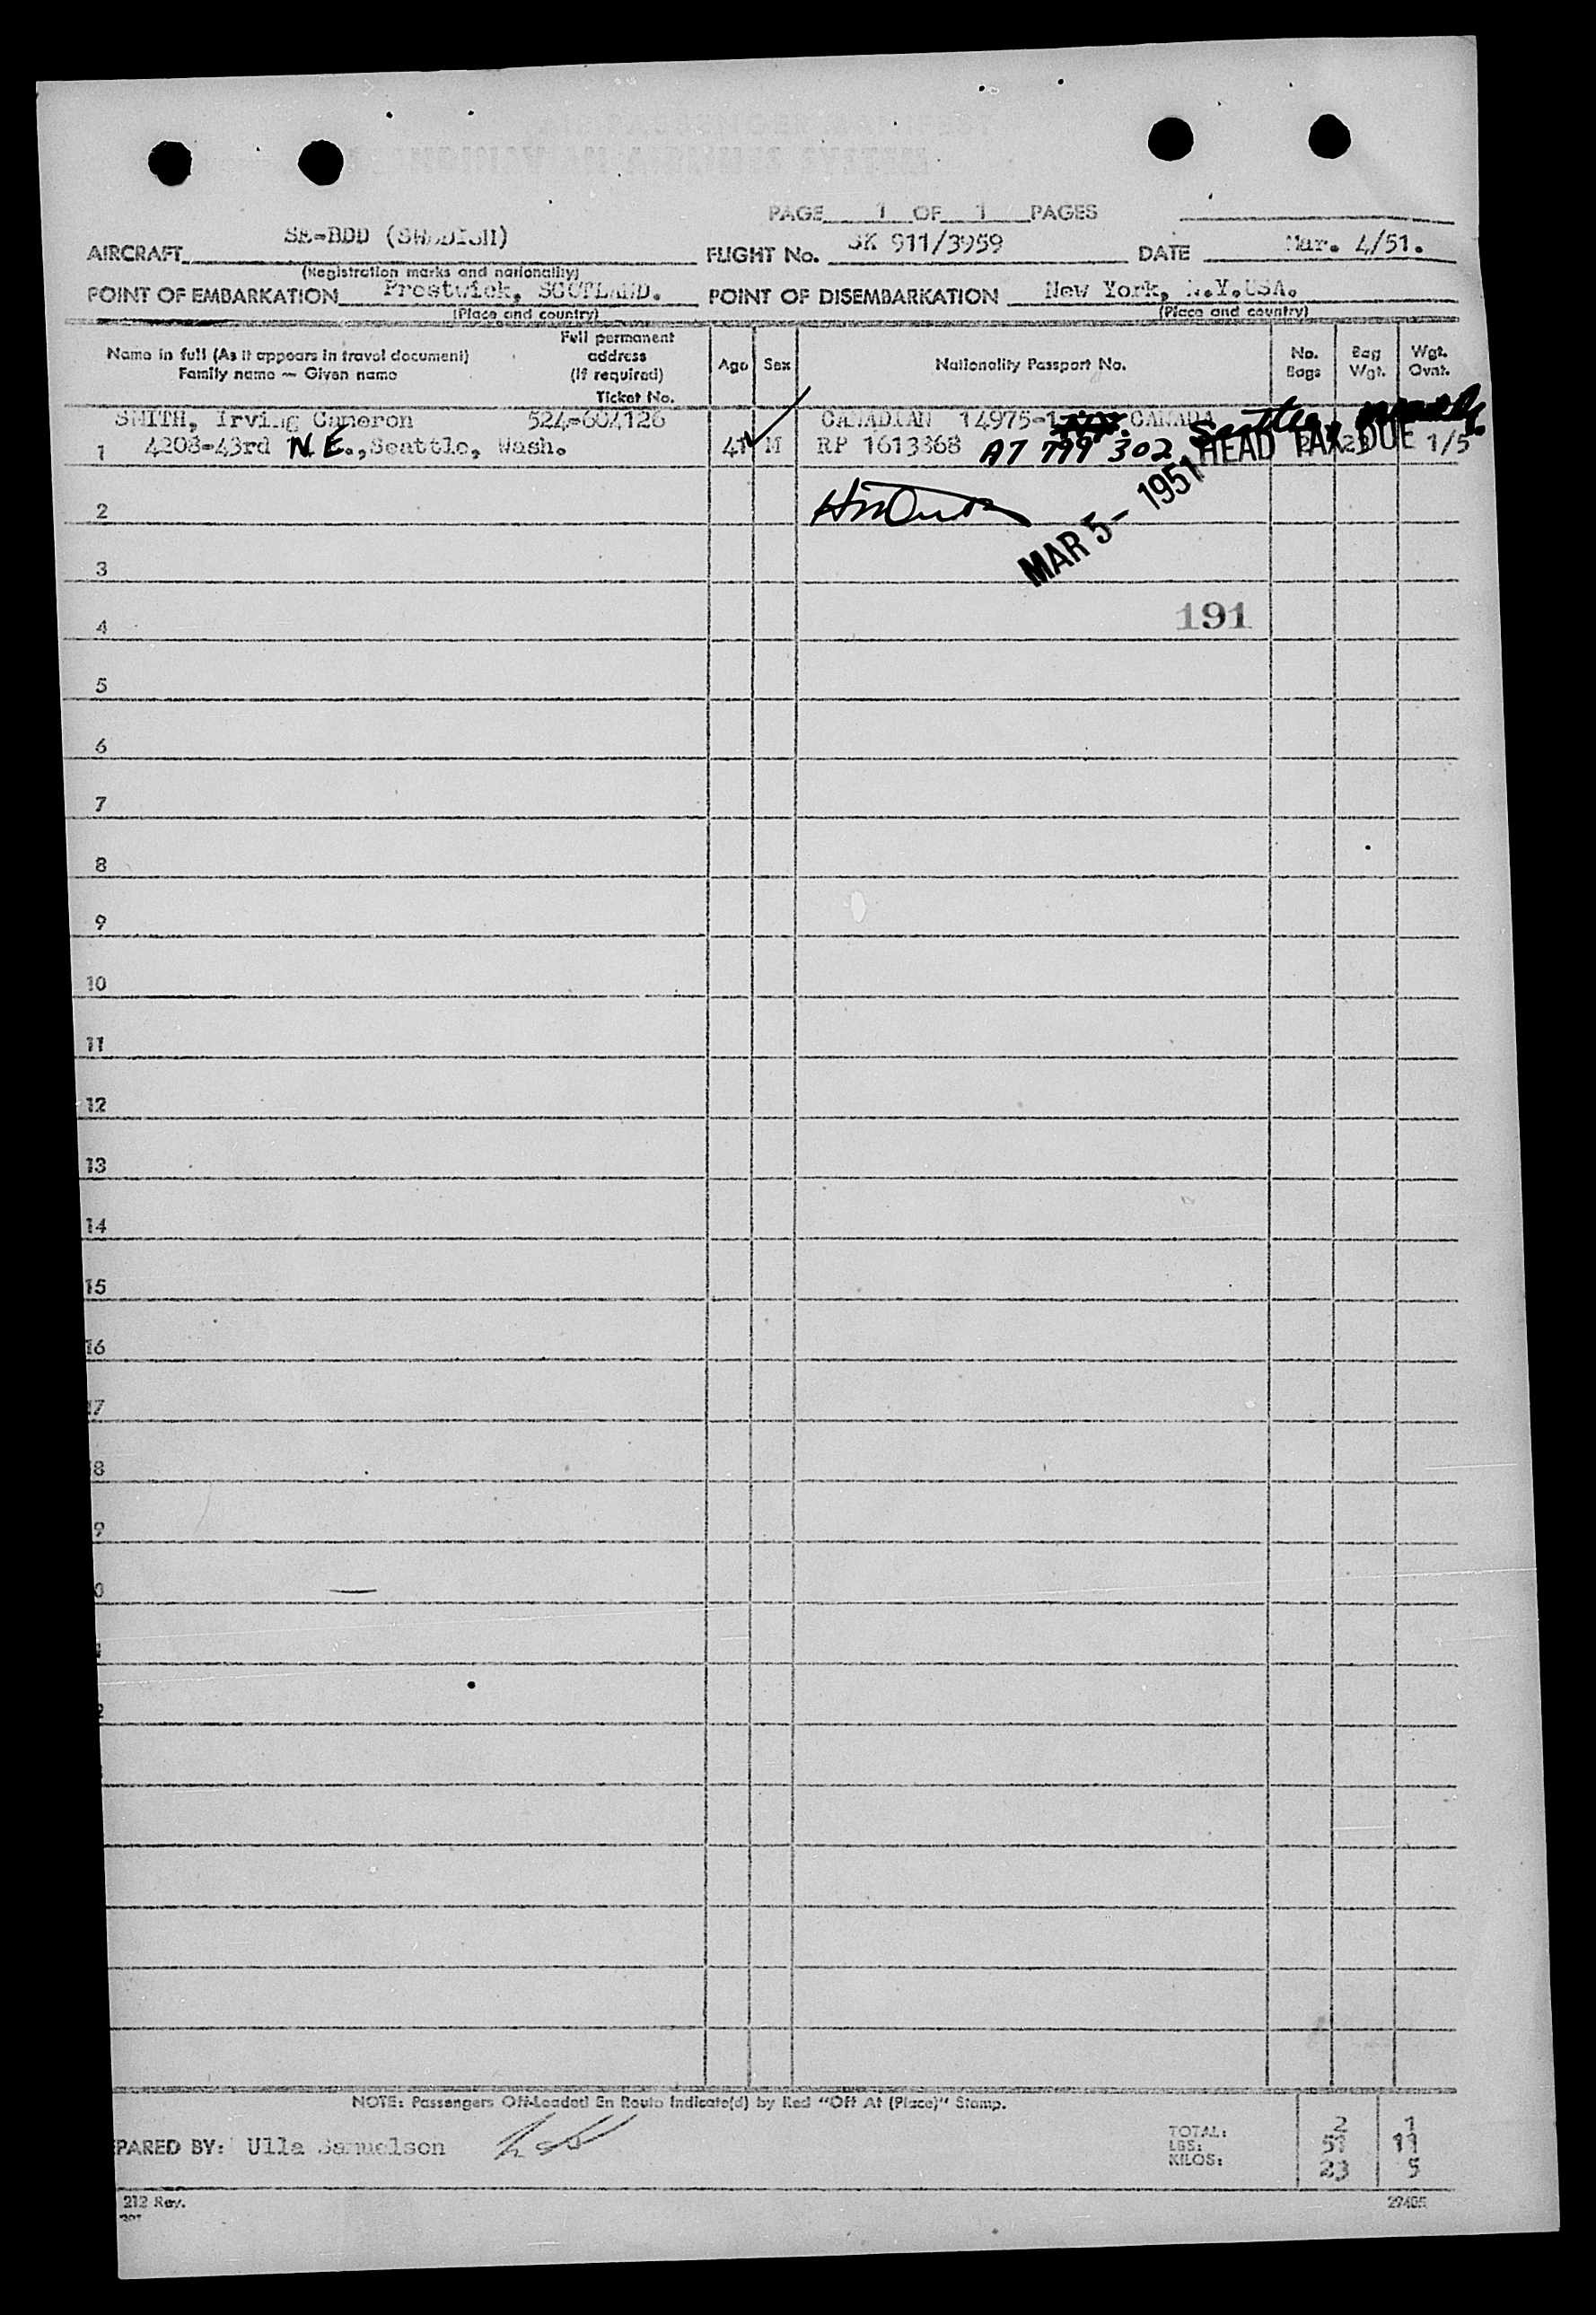 PAGE 1 OF 1 PAGES
AIRCRAFT SE-BDD (SWEDISH) FLIGHT No. SK 911/3959 DATE Mar. 4/51.
(Registration marks and nationality)
POINT OF EMBARKATION Prestwick, SCOTLAND. POINT OF DISEMBARKATION New York, N.Y.USA.
(Place and country) (Place and country)
Name in full (As it appears in travel document)
Family name — Given name
Full permanent
address
(If required)
Ticket No.
Age Sex Nationality Passport No. No. Bags Bag Wgt. Wgt. Ovnt.
SMITH, Irving Cameron 524-604126 CANADIAN 14975-1 CANADA Seattle
1 4208-43rd N.E., Seattle, Wash. 41 M RP 1613368 AT 799 302 HEAD TAX DUE 1/5
2
MAR 5- 1951
3
4 191
5
6
7
8
9
10
11
12
13
14
15
16
17
8
9
0
2
NOTE: Passengers Off-Loaded En Route Indicate(d) by Red "Off At (Place)" Stamp.
PARED BY: Ulla Samuelson
TOTAL: 2 1
LBS: 51 11
KILOS: 23 5
212 Rev.